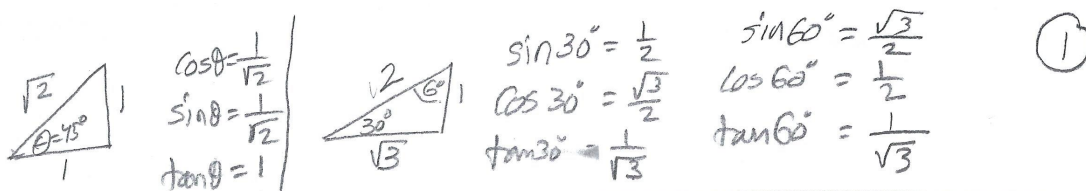 √2
1
θ=45°
1
cosθ=1/√2
sinθ=1/√2
tanθ=1
2
60°
1
30°
√3
sin30°=1/2
cos30°=√3/2
tan30°=1/√3
sin60°=√3/2
cos60°=1/2
tan60°=1/√3
1